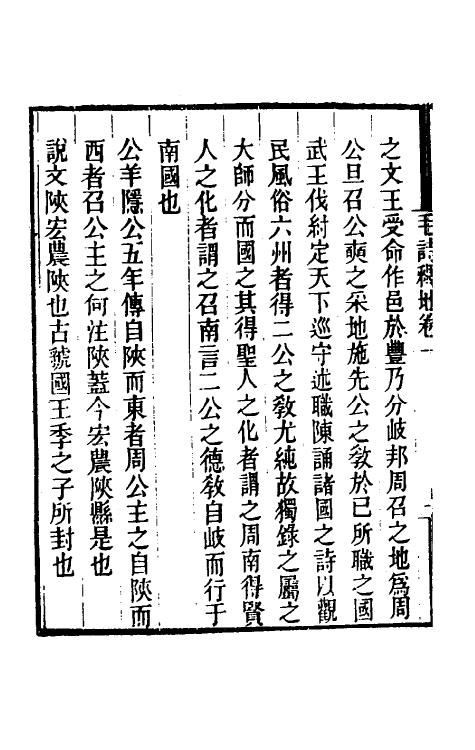 毛詩釋地卷一
之文王受命作邑於豐乃分岐邦周召之地爲周
公旦召公奭之采地施先公之敎於已所職之國
武王伐紂定天下巡守述職陳誦諸國之詩以觀
民風俗六州者得二公之敎尤純故獨錄之屬之
大師分而國之其得聖人之化者謂之周南得賢
人之化者謂之召南言二公之德敎自岐而行于
南國也
公羊隱公五年傳自陝而東者周公主之自陝而
西者召公主之何注陝蓋今宏農陝縣是也
說文陝宏農陝也古虢國王季之子所封也